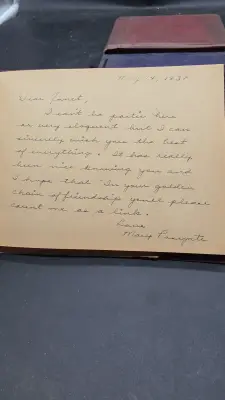 May 4, 1931
Dear Janet,
I can't be poetic here
or very eloquent but I can
sincerely wish you the best
of everything. It has really
been nice knowing you and
I hope that "In your golden
chain of friendship you'll please
count me as a link."
Love,
Mary